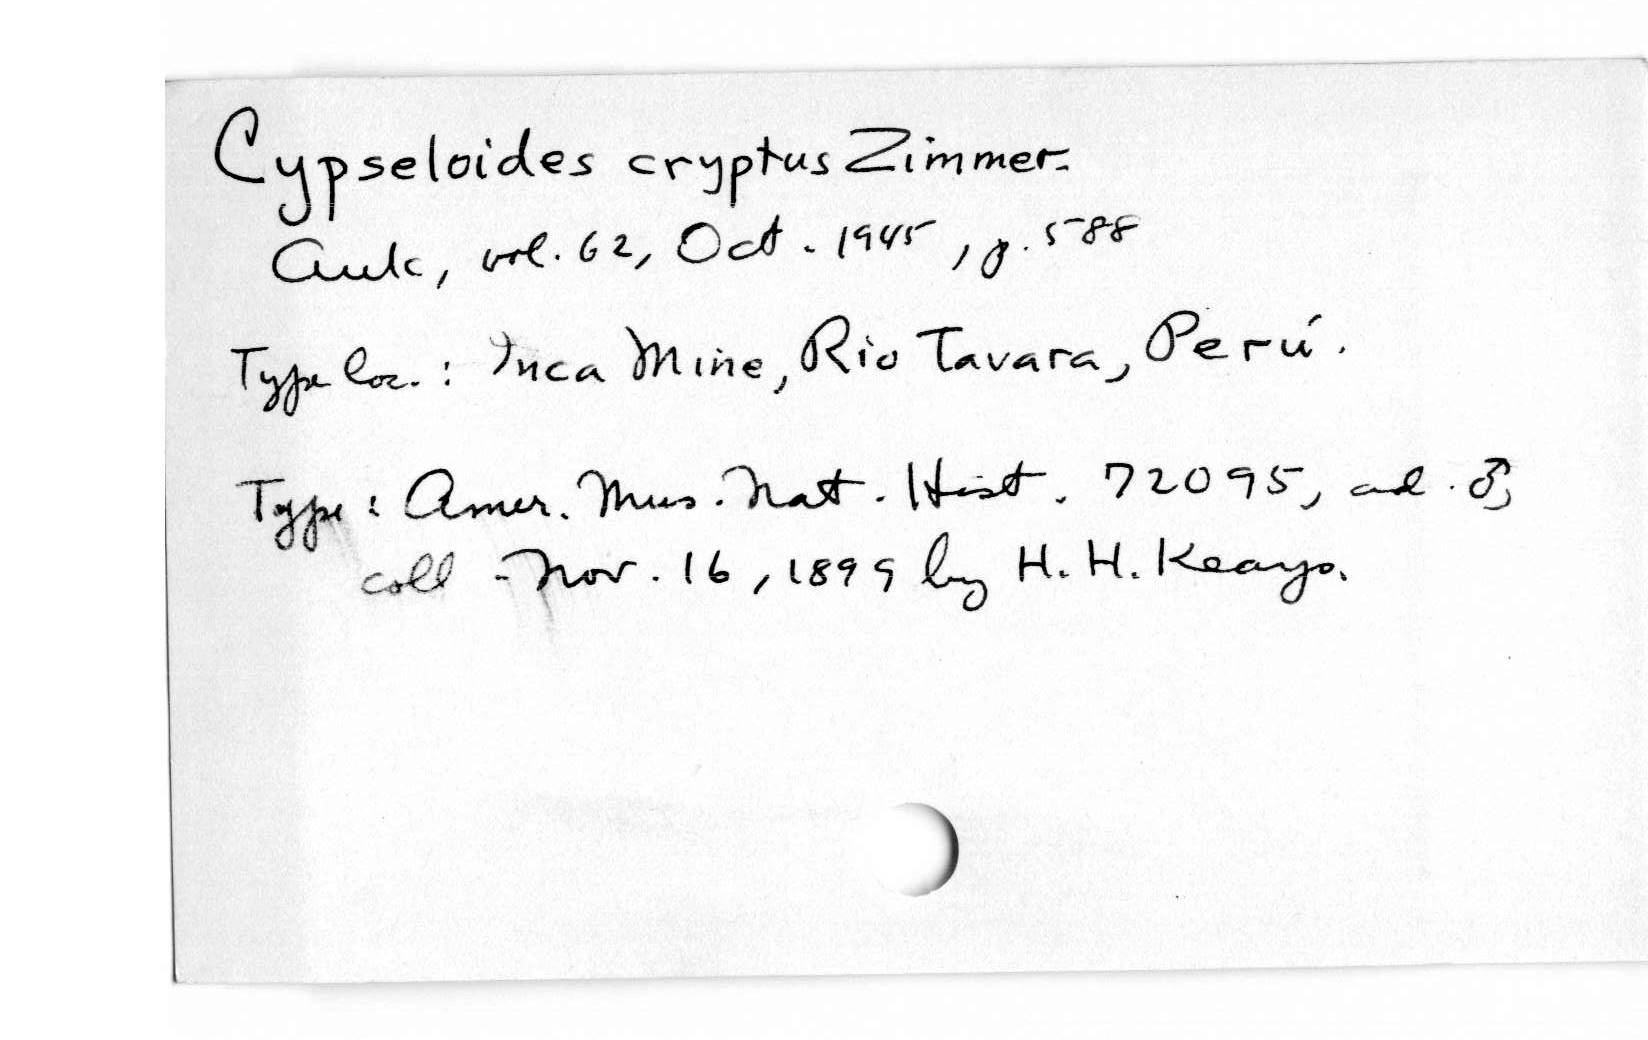 Cypseloides cryptus Zimmer.
Auk, vol. 62, Oct. 1945, p. 588
Type loc.: Inca Mine, Rio Tavara, Perú.
Type: Amer. Mus. Nat. Hist. 72095, ad. ♂,
coll. Nov. 16, 1899 by H. H. Keays.